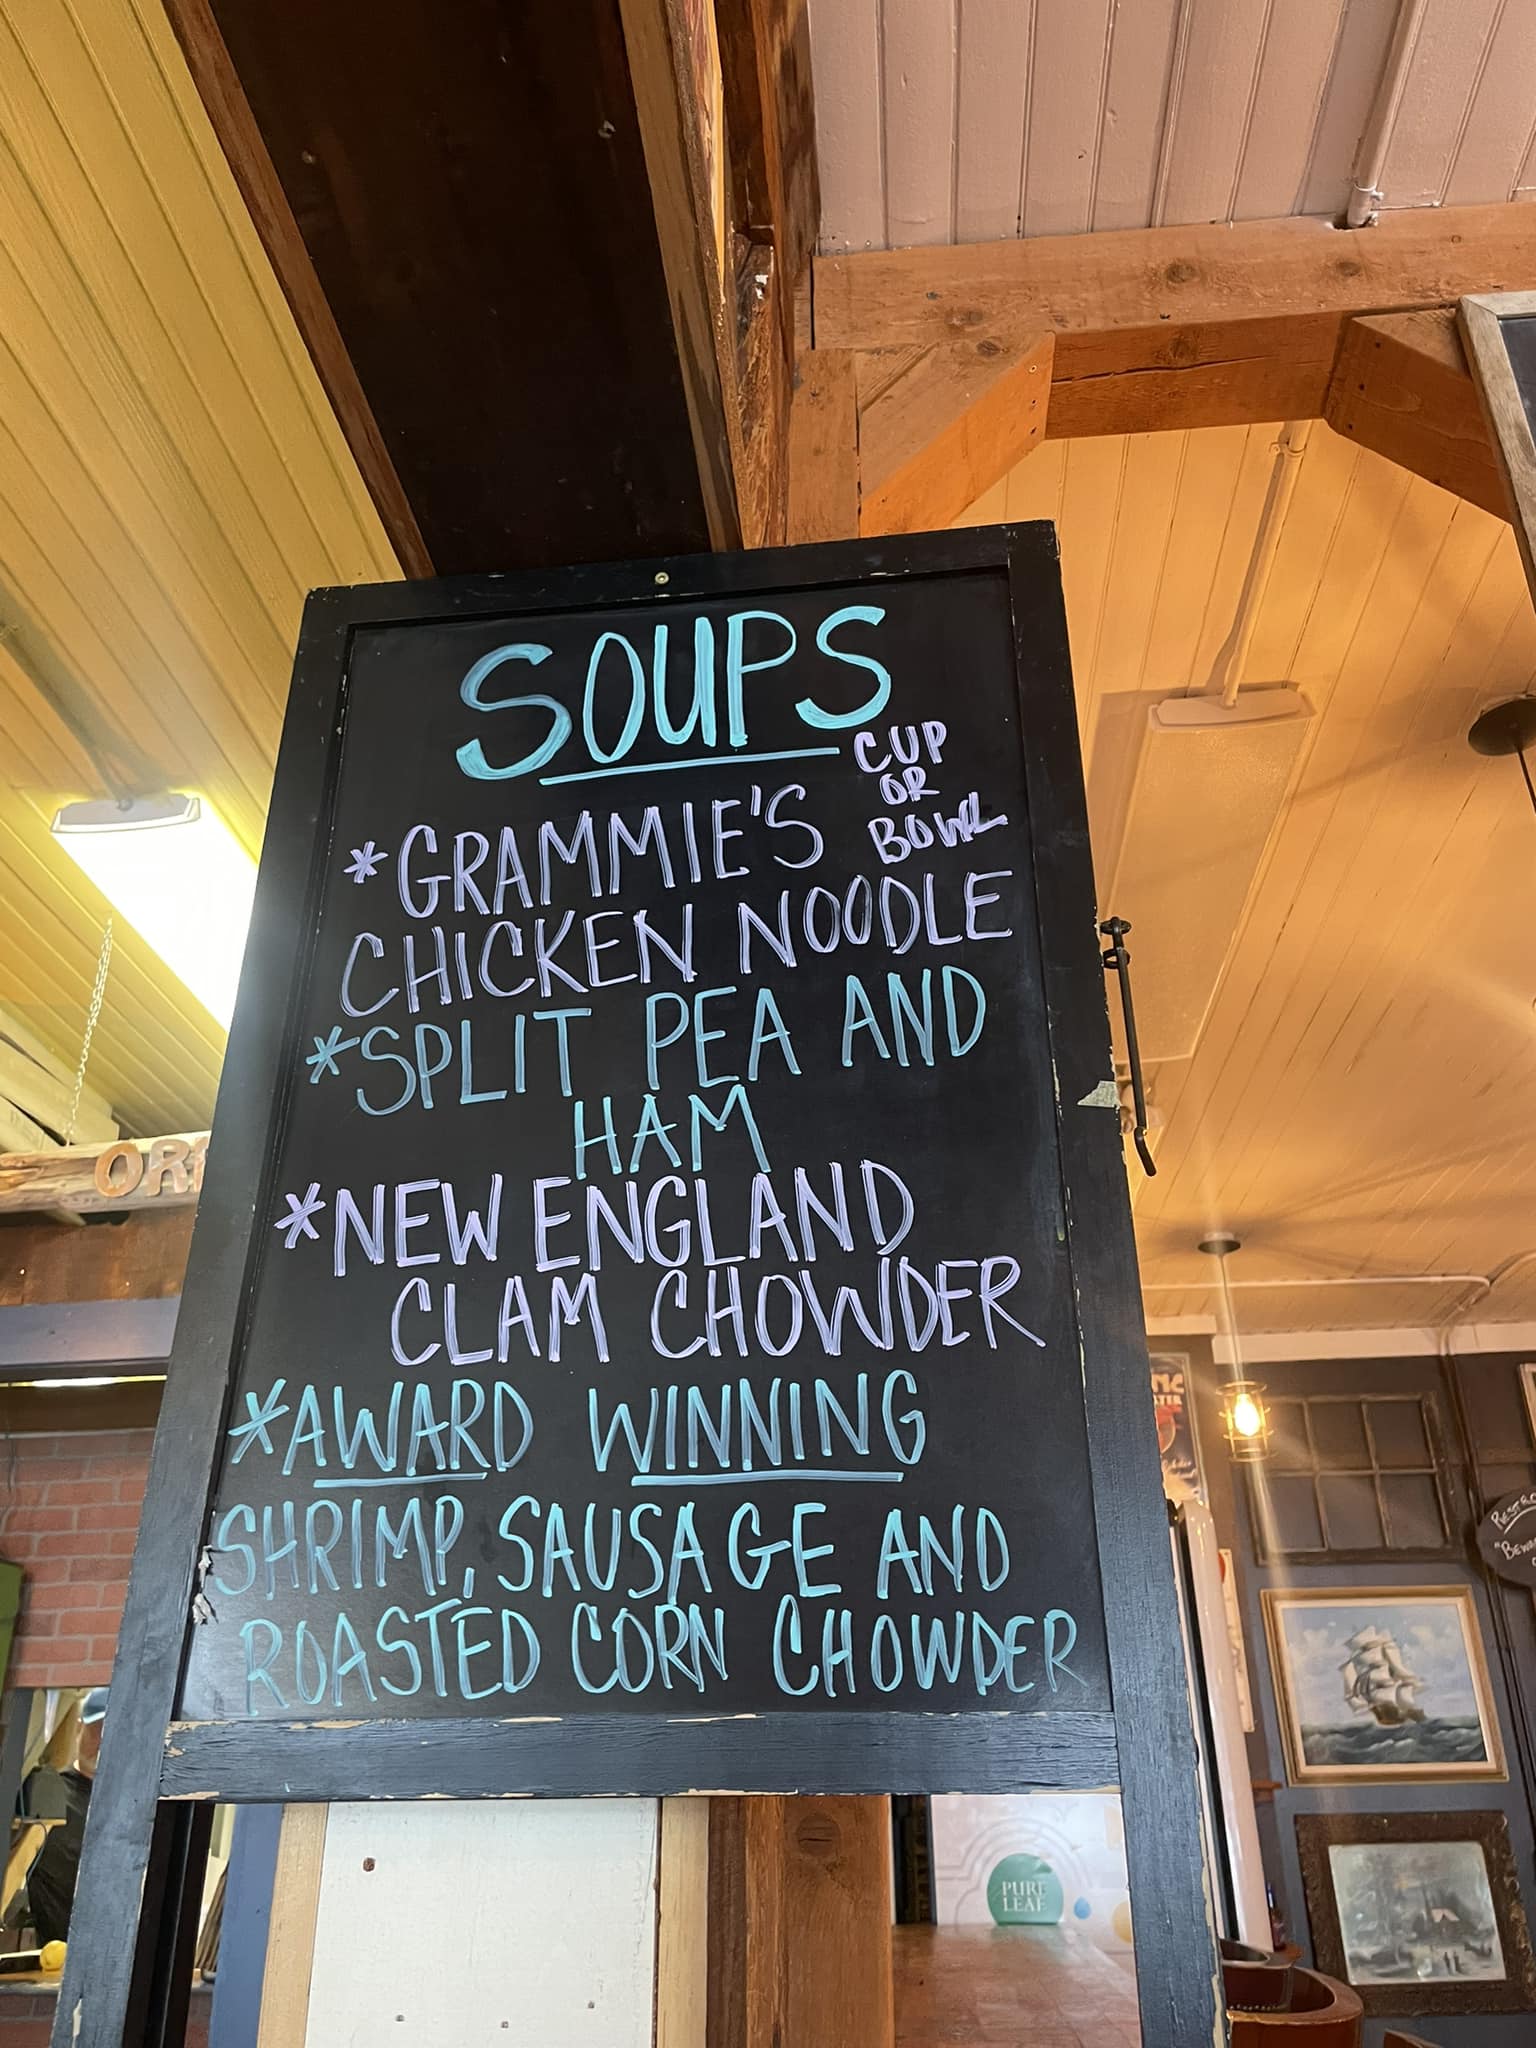 SOUPS
CUP
OR
BOWL
*GRAMMIE'S
CHICKEN NOODLE
*SPLIT PEA AND
HAM
*NEW ENGLAND
CLAM CHOWDER
*AWARD WINNING
SHRIMP, SAUSAGE AND
ROASTED CORN CHOWDER
PURE
LEAF